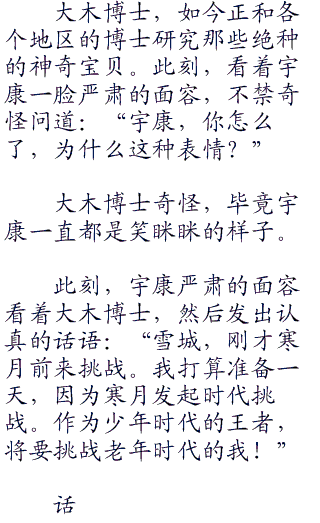 大木博士，如今正和各
个地区的博士研究那些绝种
的神奇宝贝。此刻，看着宇
康一脸严肃的面容，不禁奇
怪问道：“宇康，你怎么
了，为什么这种表情？”
大木博士奇怪，毕竟宇
康一直都是笑眯眯的样子。
此刻，宇康严肃的面容
看着大木博士，然后发出认
真的话语：“雪城，刚才寒
月前来挑战。我打算准备一
天，因为寒月发起时代挑
战。作为少年时代的王者，
将要挑战老年时代的我！”
话